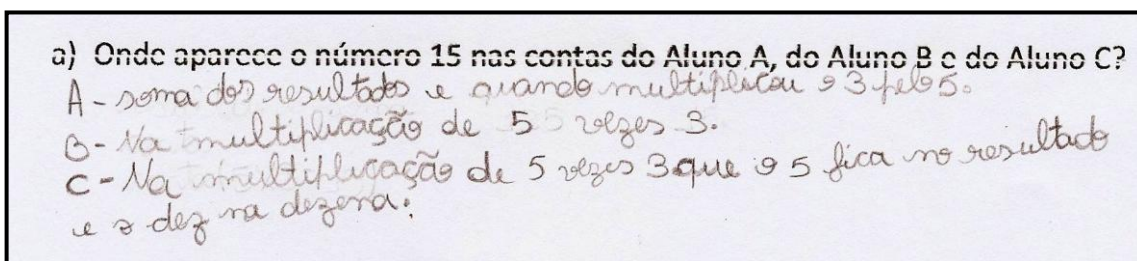 a) Onde aparece o número 15 nas contas do Aluno A, do Aluno B e do Aluno C?
A - soma dos resultados e quando multiplicou o 3 pelo 5.
B - Na multiplicação de 5 vezes 3.
C - Na multiplicação de 5 vezes 3 que o 5 fica no resultado
e o dez na dezena.